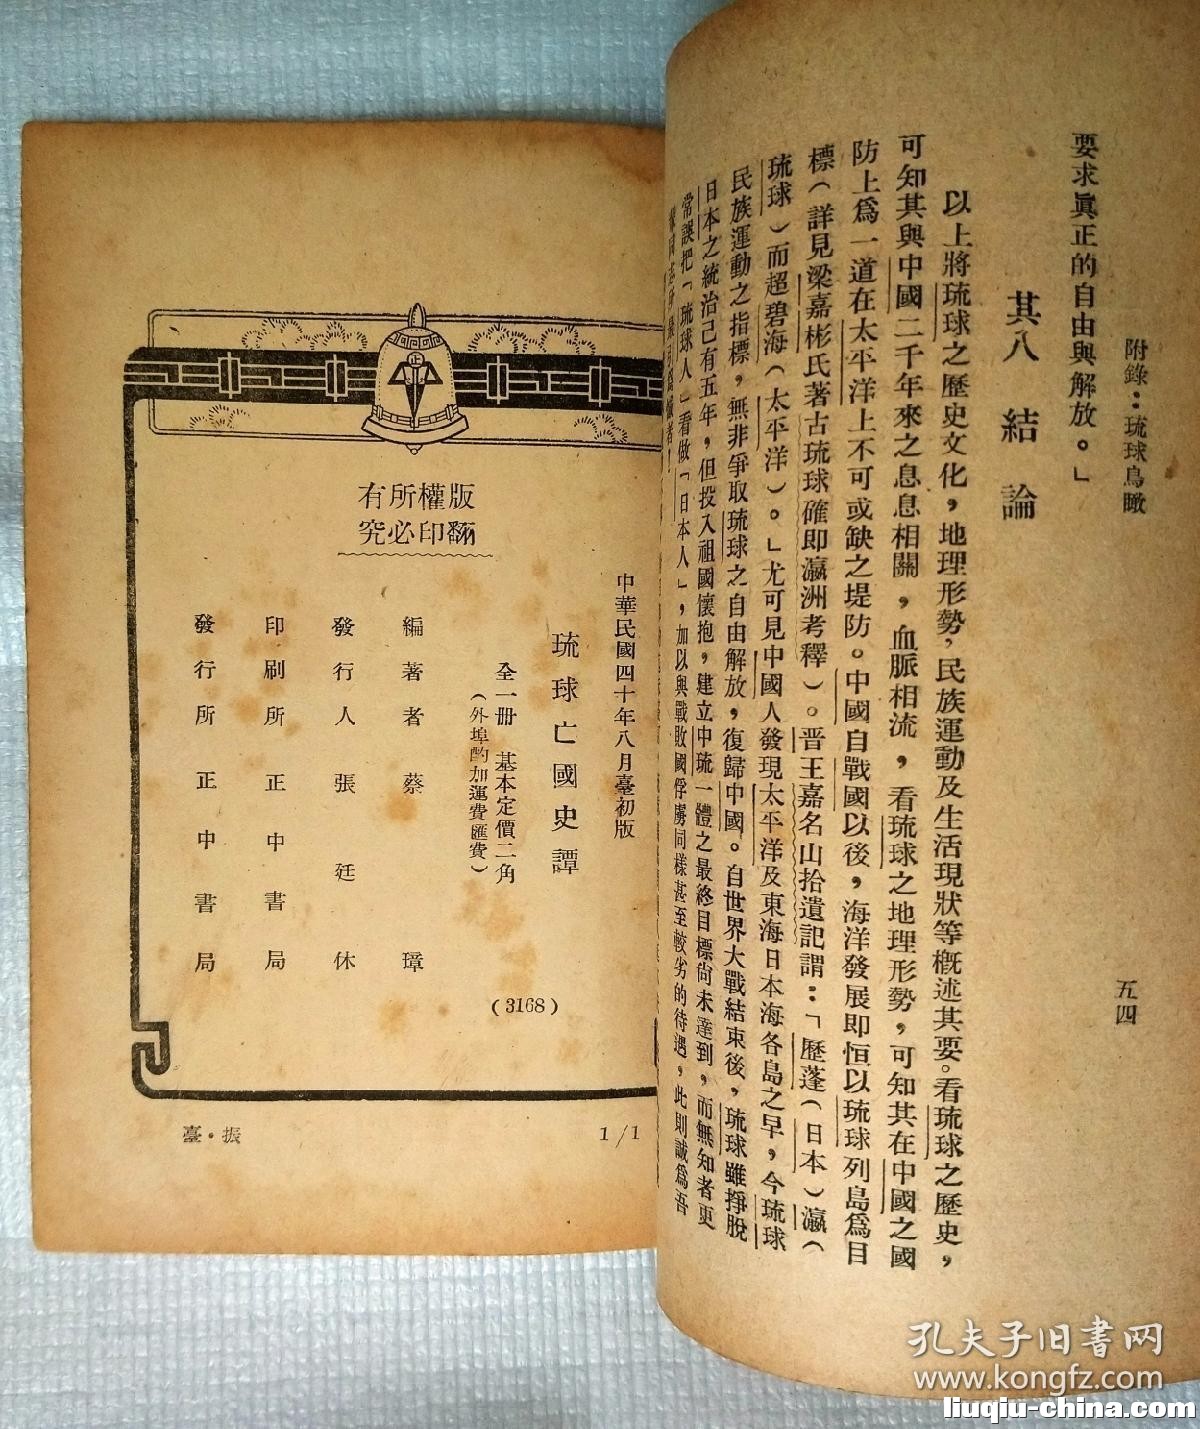 附錄：琉球鳥瞰
五四
要求眞正的自由與解放。」
其八　結論
以上將琉球之歷史文化，地理形勢，民族運動及生活現狀等概述其要。看琉球之歷史，
可知其與中國二千年來之息息相關，血脈相流，看琉球之地理形勢，可知其在中國之國
防上爲一道在太平洋上不可或缺之堤防。中國自戰國以後，海洋發展即恒以琉球列島爲目
標（詳見梁嘉彬氏著古琉球確即瀛洲考釋）。晋王嘉名山拾遺記謂：「歷蓬（日本）瀛（
琉球）而超碧海（太平洋）。」尤可見中國人發現太平洋及東海日本海各島之早，今琉球
民族運動之指標，無非爭取琉球之自由解放，復歸中國。自世界大戰結束後，琉球雖掙脫
日本之統治已有五年，但投入祖國懷抱，建立中琉一體之最終目標尙未達到，而無知者更
常誤把「琉球人」看做「日本人」，加以與戰敗國俘虜同樣甚至較劣的待遇，此則誠爲吾
者！
版權所有
翻印必究
中華民國四十年八月臺初版
琉球亡國史譚
全一冊　基本定價二角
（外埠酌加運費匯費）
編著者　蔡璋
發行人　張廷休
印刷所　正中書局
發行所　正中書局
（3168）
臺．振
1/1
孔夫子旧书网
www.kongfz.com
liuqiu-china.com